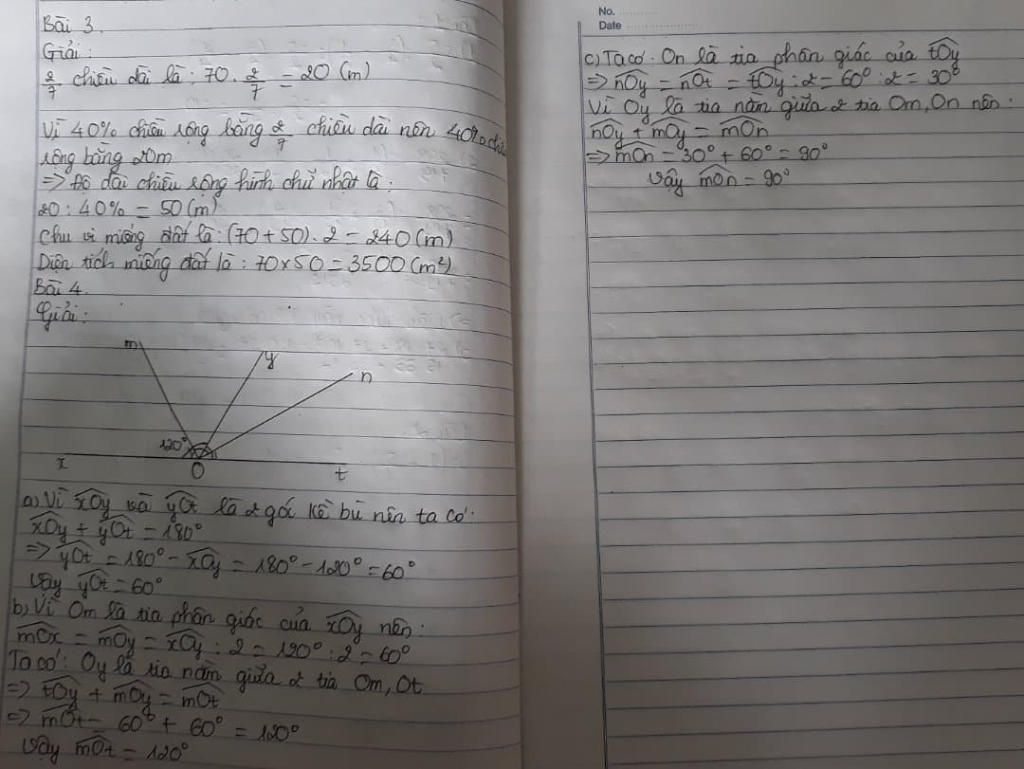 Bài 3.
Giải:
2/7 chiều dài là: 70. 2/7 = 20 (m)
Vì 40% chiều rộng bằng 2/7 chiều dài nên 40% chiều
rộng bằng 20m
=> Độ dài chiều rộng hình chữ nhật là:
20 : 40% = 50 (m)
Chu vi miếng đất là: (70 + 50) . 2 = 240 (m)
Diện tích miếng đất là: 70 x 50 = 3500 (m²)
Bài 4.
Giải:
m
y
n
120°
x
O
t
a) Vì xOy và yOt là 2 góc kề bù nên ta có:
xOy + yOt = 180°
=> yOt = 180° - xOy = 180° - 120° = 60°
Vậy yOt = 60°
b) Vì Om là tia phân giác của xOy nên:
mOx = mOy = xOy : 2 = 120° : 2 = 60°
Ta có: Oy là tia nằm giữa 2 tia Om, Ot
=> tOy + mOy = mOt
=> mOt = 60° + 60° = 120°
Vậy mOt = 120°
No.
Date
c) Ta có: On là tia phân giác của tOy
=> nOy = nOt = tOy : 2 = 60° : 2 = 30°
Vì Oy là tia nằm giữa 2 tia Om, On nên:
nOy + mOy = mOn
=> mOn = 30° + 60° = 90°
Vậy mOn = 90°